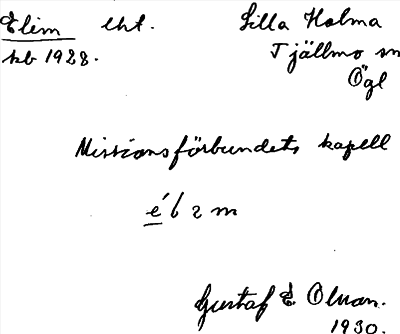 Elim lht. Lilla Holma
kb 1928. Tjällmo sn
Ögl
Missionsförbundets kapell
é b 2 m
Gustaf E Olson.
1930.